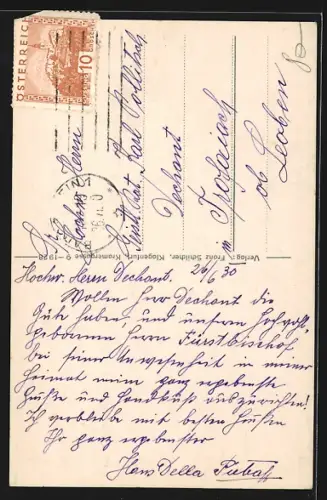 ÖSTERREICH
10
GROSCHEN
80
Sr. Hochw. Herrn
Geistl. Rat Karl Pollitsch
Dechant
in Trofaiach
ob Leoben
Verlag: Franz Schilcher, Klagenfurt, Kramergasse 9 - 1928
26/6 30
Hochw. Herrn Dechant.
Wollen Herr Dechant die
Güte haben, und unsern hochwohl-
geborenen Herrn Fürstbischof
bei seiner Anwesenheit in meiner
Heimat meine ganz ergebenste
Grüße und Handkuß auszurichten!
Ich verbleibe mit besten Grüßen
Ihr ganz ergebenster
Hans Della